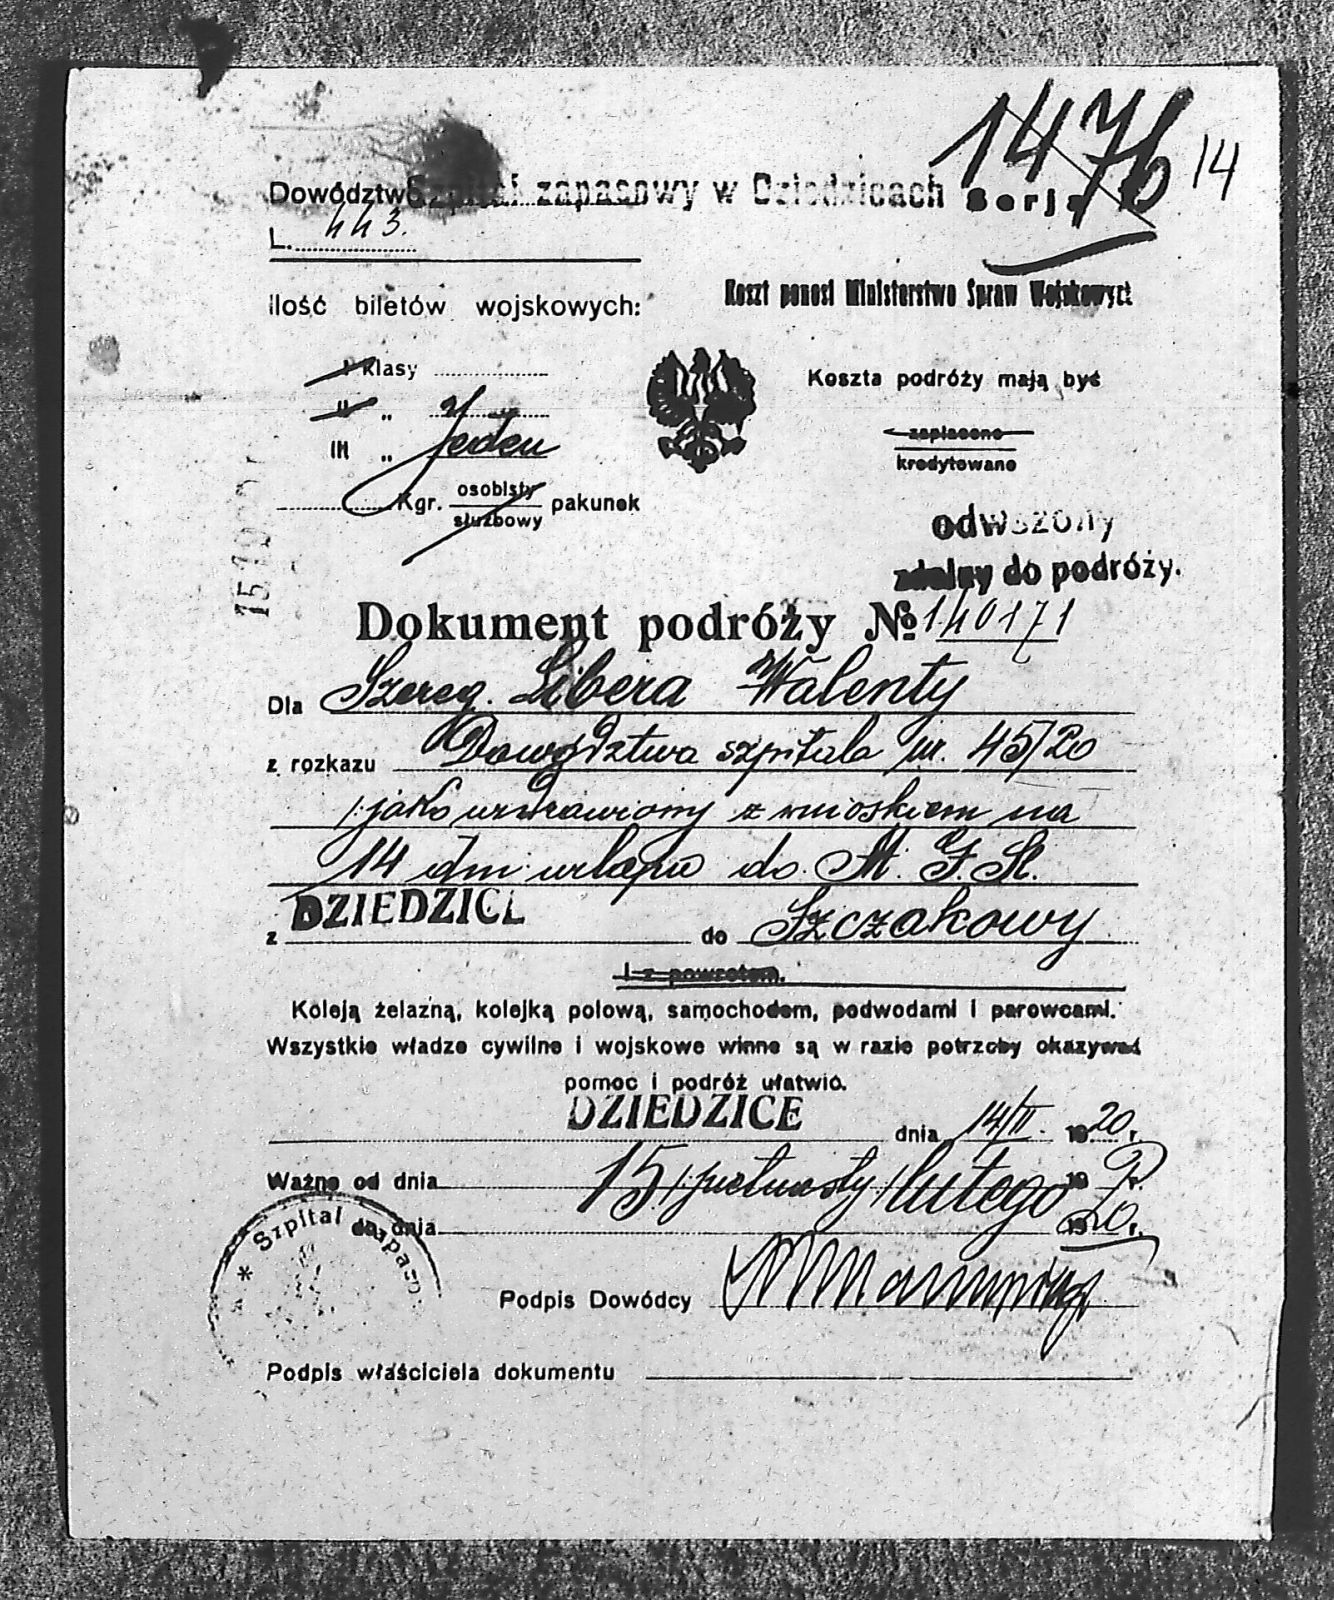 1476
14
Dowództwo Szpital zapasowy w Dziedzicach Serja
L. 443.
Ilość biletów wojskowych:
Koszt ponosi Ministerstwo Spraw Wojskowych
I klasy
II „
III „ Jeden
Kgr. osobisty pakunek
służbowy
Koszta podróży mają być
zapłacone
kredytowane
odwszony
zdolny do podróży.
Dokument podróży № 140171
Dla Szereg. Libera Walenty
z rozkazu Dowództwa szpitala nr. 45/20
jako uzdrawiony z wnioskiem na
14 dni urlapu do
z DZIEDZICE do Szczakowy
i z powrotem.
Koleją żelazną, kolejką polową, samochodem, podwodami i parowcami.
Wszystkie władze cywilne i wojskowe winne są w razie potrzeby okazywać
pomoc i podróż ułatwić.
DZIEDZICE dnia 14/II. 1920 r.
Ważne od dnia 15 /piętnasty/ lutego 19 r.
do dnia 1920 r.
* Szpital zapasow
Podpis Dowódcy
Podpis właściciela dokumentu